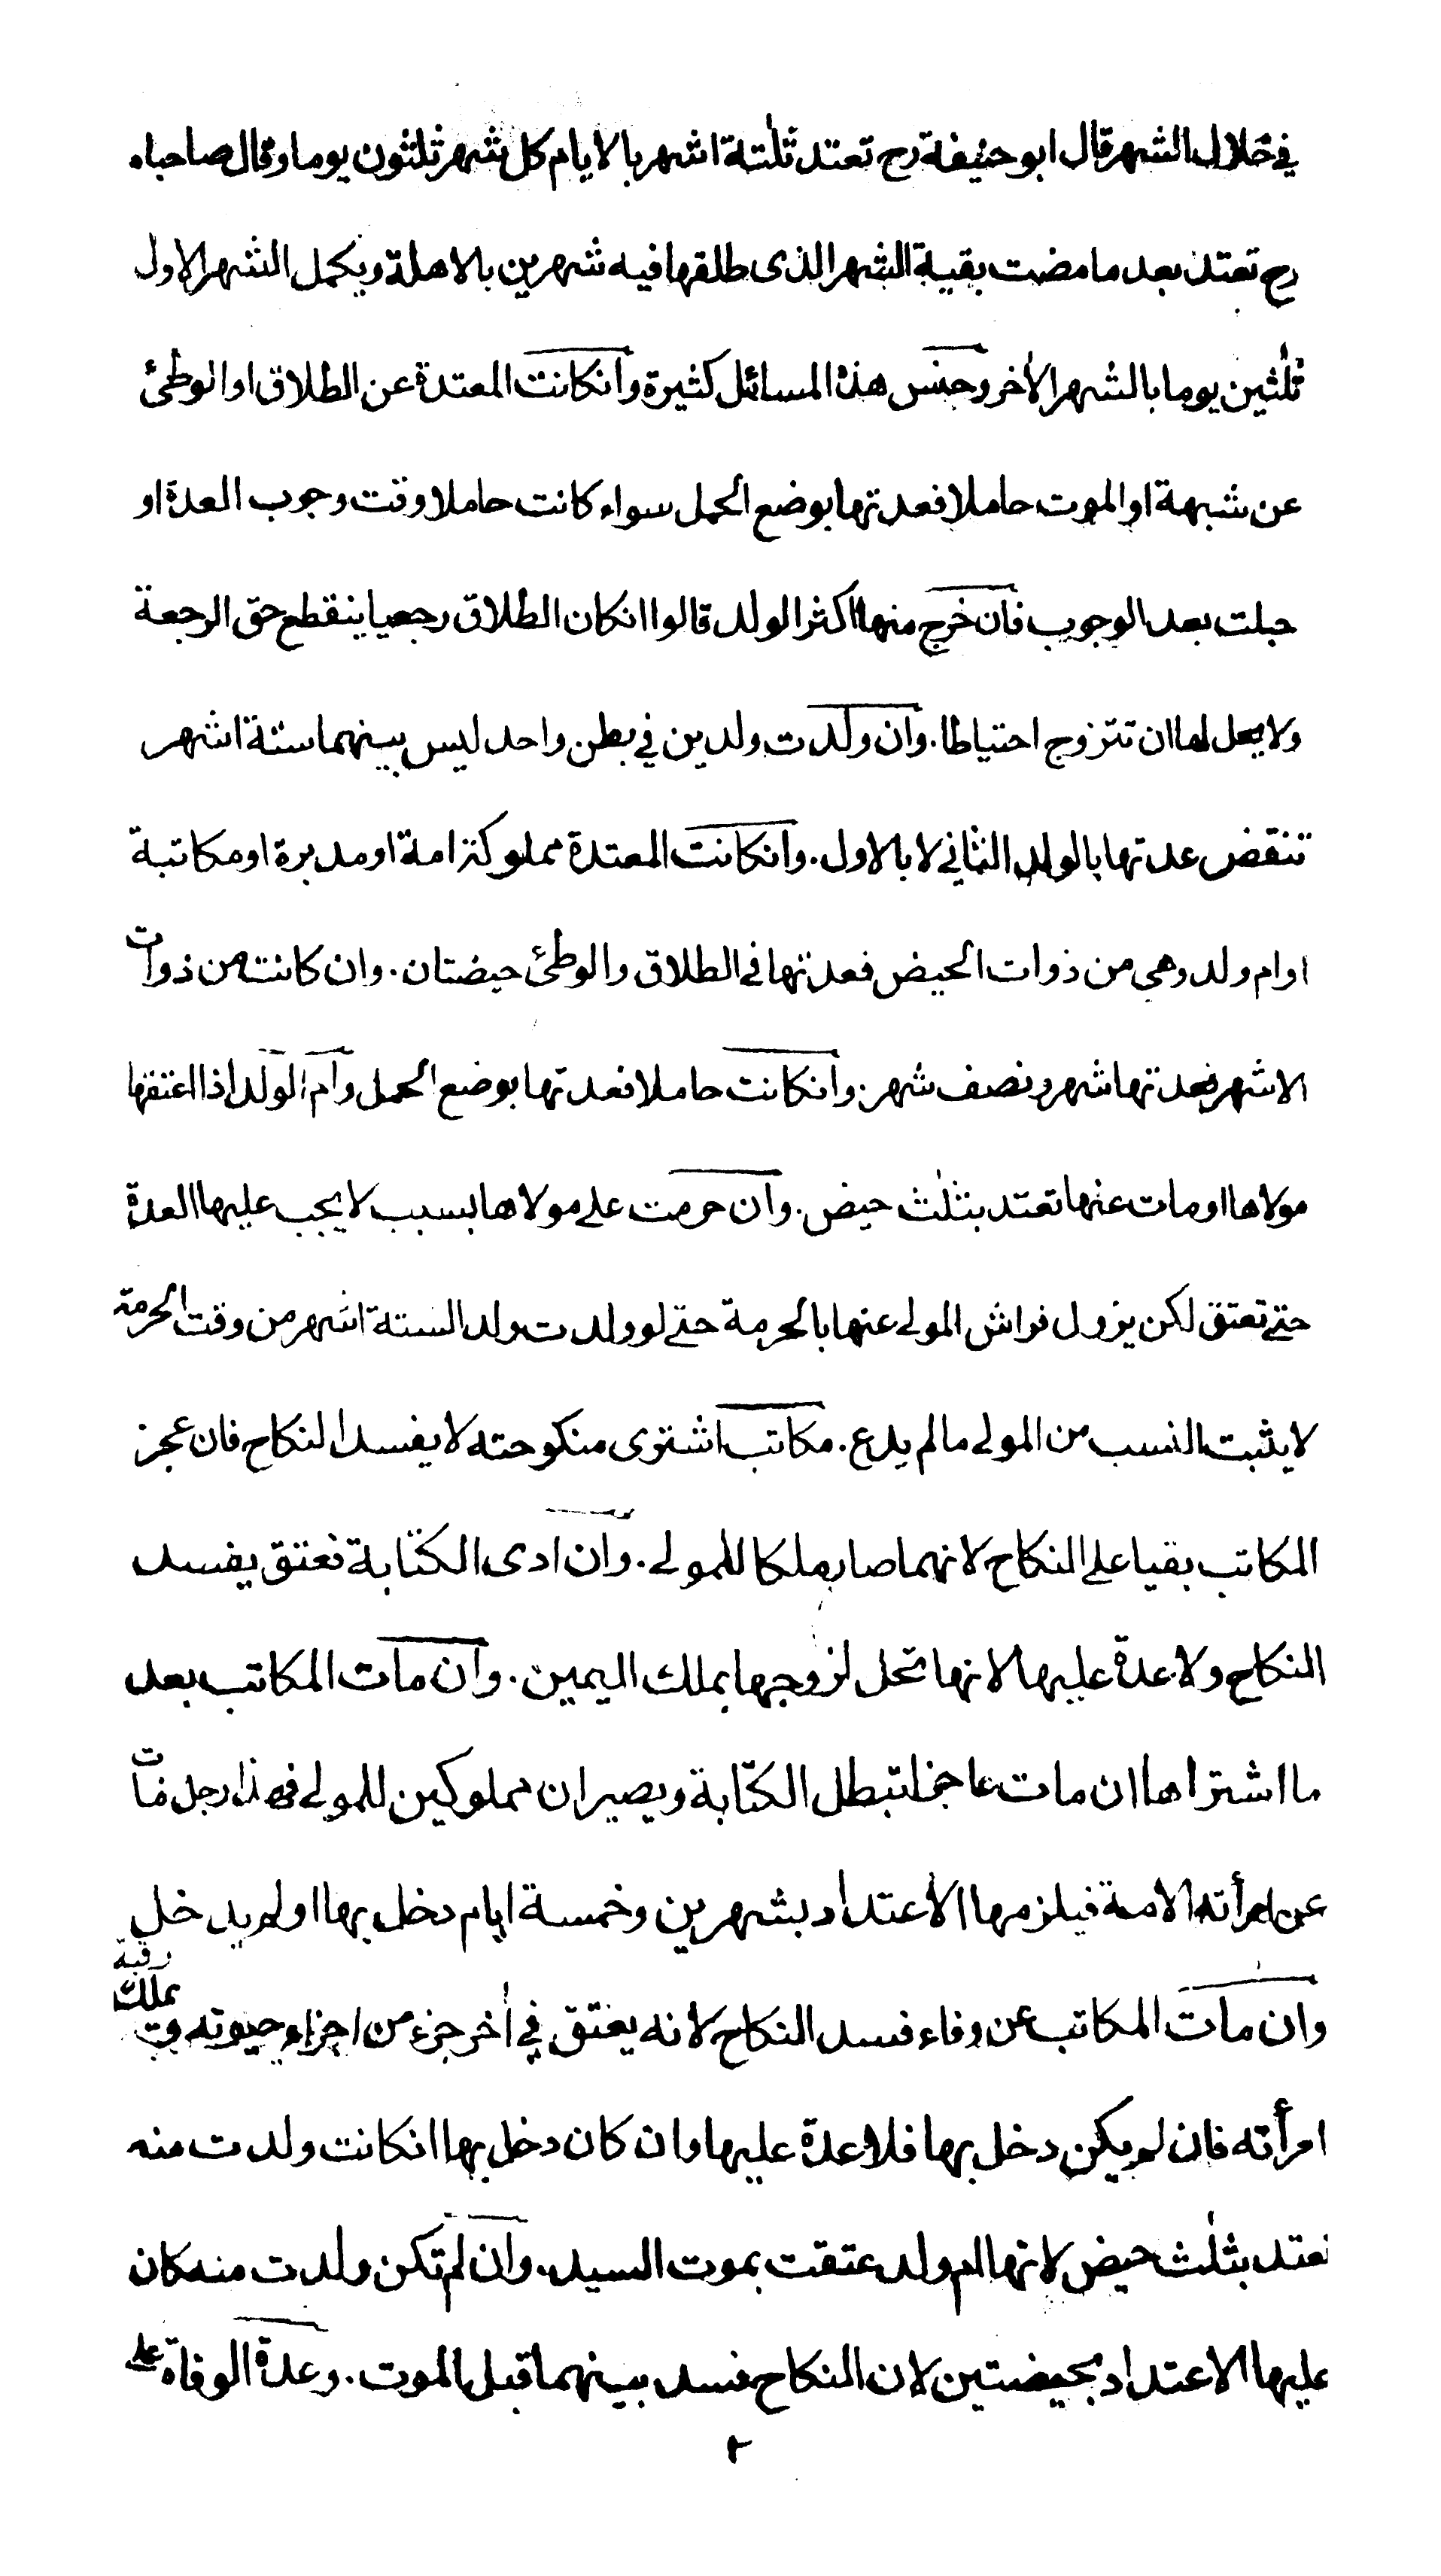 في خلال الشهر قال ابو حنيفة رح تعتد ثلثة اشهر بالايام كل شهر ثلثون يوما وقال صاحباه
رح تعتد بعد ما مضت بقية الشهر الذى طلقها فيه شهرين بالاهلة ويكمل الشهر الاول
ثلثين يوما بالشهر الأخر وجنس هذه المسائل كثيرة وانكانت المعتدة عن الطلاق او الوطئ
عن شبهة او الموت حاملا فعدتها بوضع الحمل سواء كانت حاملا وقت وجوب العدة او
حبلت بعد الوجوب فان خرج منها اكثر الولد قالوا انكان الطلاق رجعيا ينقطع حق الرجعة
ولا يحل لها ان تتزوج احتياطا. وان ولدت ولدين في بطن واحد ليس بينهما ستة اشهر
تنقضى عدتها بالولد الثاني لا بالاول. وانكانت المعتدة مملوكة امة او مدبرة او مكاتبة
او ام ولد وهي من ذوات الحيض فعدتها في الطلاق والوطئ حيضتان. وان كانت من ذوات
الاشهر فعدتها شهر ونصف شهر. وانكانت حاملا فعدتها بوضع الحمل وام الولد اذا اعتقها
مولاها او مات عنها تعتد بثلث حيض. وان حرمت على مولاها بسبب لا يجب عليها العدة
حتى تعتق لكن يزول فراش المولى عنها بالحرمة حتى لو ولدت ولدا لستة اشهر من وقت الحرمة
لا يثبت النسب من المولى مالم يدع. مكاتب اشترى منكوحته لا يفسد النكاح فان عجز
المكاتب بقيا على النكاح لانهما صارا ملكا للمولى. وان ادى الكتابة فعتق يفسد
النكاح ولا عدة عليها لانها تحل لزوجها بملك اليمين. وان مات المكاتب بعد
ما اشتراها ان مات عاجزا تبطل الكتابة ويصيران مملوكين للمولى فهذا رجل مات
عن امرأته الامة فيلزمها الاعتداد بشهرين وخمسة ايام دخل بها او لم يدخل
وان مات المكاتب عن وفاء فسد النكاح لانه يعتق في أخر جزء من اجزاء حيوته ويملك رقبة
امرأته فان لم يكن دخل بها فلا عدة عليها وان كان دخل بها انكانت ولدت منه
تعتد بثلث حيض لانها ام ولد عتقت بموت السيد. وان لم تكن ولدت منه كان
عليها الاعتداد بحيضتين لان النكاح فسد بينهما قبل الموت. وعدة الوفاة على
٢